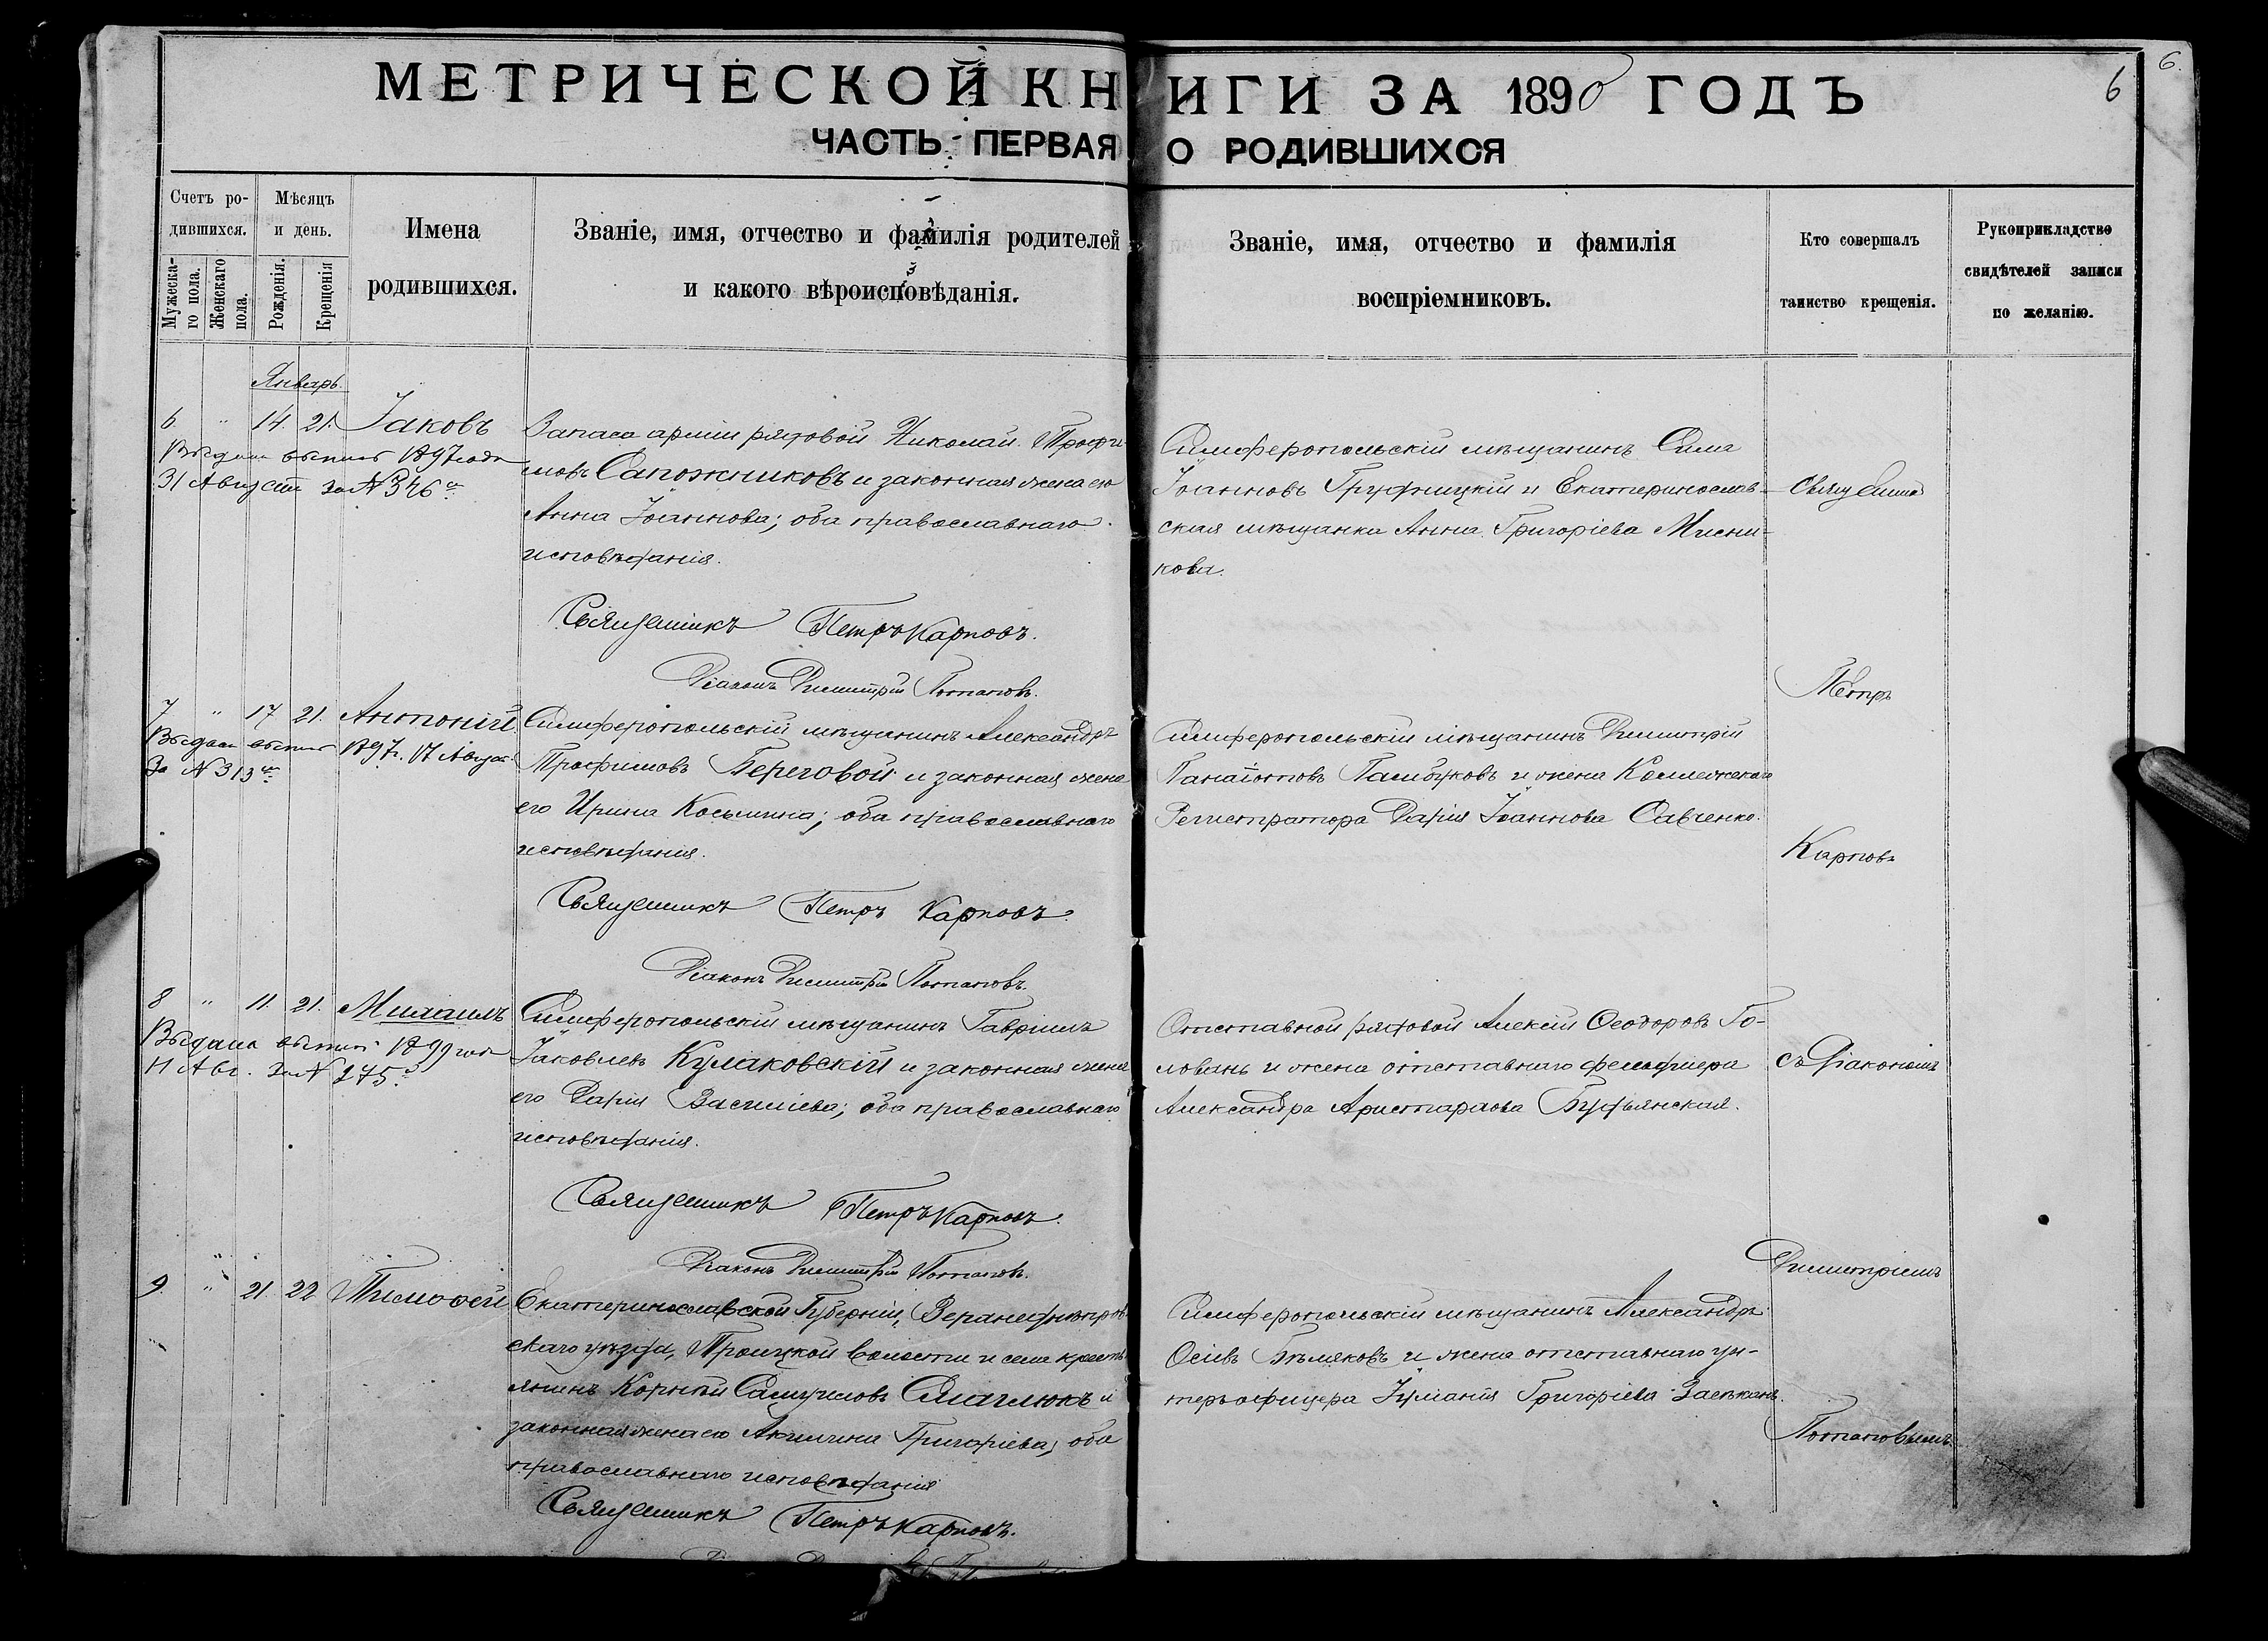 6.
6
МЕТРИЧЕСКОЙ КНИГИ ЗА 1890 ГОДЪ
ЧАСТЬ ПЕРВАЯ О РОДИВШИХСЯ
Счетъ ро-
дившихся.
Мужеска-
го пола.
Женскаго
пола.
Мѣсяцъ
и день.
Рожденія.
Крещенія
Имена
родившихся.
Званіе, имя, отчество и фамилія родителей
и какого вѣроисповѣданія.
Званіе, имя, отчество и фамилія
воспріемниковъ.
Кто совершалъ
таинство крещенія.
Рукоприкладство
свидѣтелей записи
по желанію.
Январь.
6 " 14. 21. Іаковъ
Выдана выпись 1897 года
31 Августа за № 346
Запаса арміи рядовой Николай Трофи-
мовъ Сапожниковъ и законная жена его
Анна Іоаннова; оба православнаго
исповѣданія.
Священникъ Петръ Карповъ.
Діаконъ Димитрій Потаповъ.
Симферопольскій мѣщанинъ Сима
Іоанновъ Грудницкій и Екатеринослав-
ская мѣщанка Анна Григоріева Мисни-
кова.
7 " 17 21. Антоній.
Выдана выпись 1897г. 17 Август
За № 313
Симферопольскій мѣщанинъ Александръ
Трофимовъ Береговой и законная жена
его Ирина Косьмина; оба православнаго
исповѣданія.
Священникъ Петръ Карповъ.
Діаконъ Димитрій Потаповъ.
Симферопольскій мѣщанинъ Димитрій
Панаіотовъ и жена Коллежскаго
Регистратора Дарія Іоаннова Савченко.
8 " 11. 21. Михаилъ
Выдана выпись 1899 года
11 Авг. за № 275
Симферопольскій мѣщанинъ Гавріилъ
Іаковлевъ Кулаковскій и законная жена
его Дарія Василіева; оба православнаго
исповѣданія.
Священникъ Петръ Карповъ.
Діаконъ Димитрій Потаповъ.
Отставной рядовой Алексій Ѳеодоровъ Го-
ловань и жена отставнаго фельдшера
Александра Аристархова Будьянская.
9. " 21. 22 Тимоѳей
Екатеринославской Губерніи, Верхнеднѣпров-
скаго уѣзда, Троицкой волости и села кресть-
янинъ Корнѣй Самуиловъ Смаглюкъ и
законная жена его Акилина Григоріева; оба
православнаго исповѣданія
Священникъ Петръ Карповъ.
Симферопольскій мѣщанинъ Александръ
Осіевъ Бѣляковъ и жена отставнаго ун-
теръ офицера Іуліанія Григоріева
Священникъ
Петръ
Карповъ
съ Діакономъ
Димитріемъ
Потаповымъ.